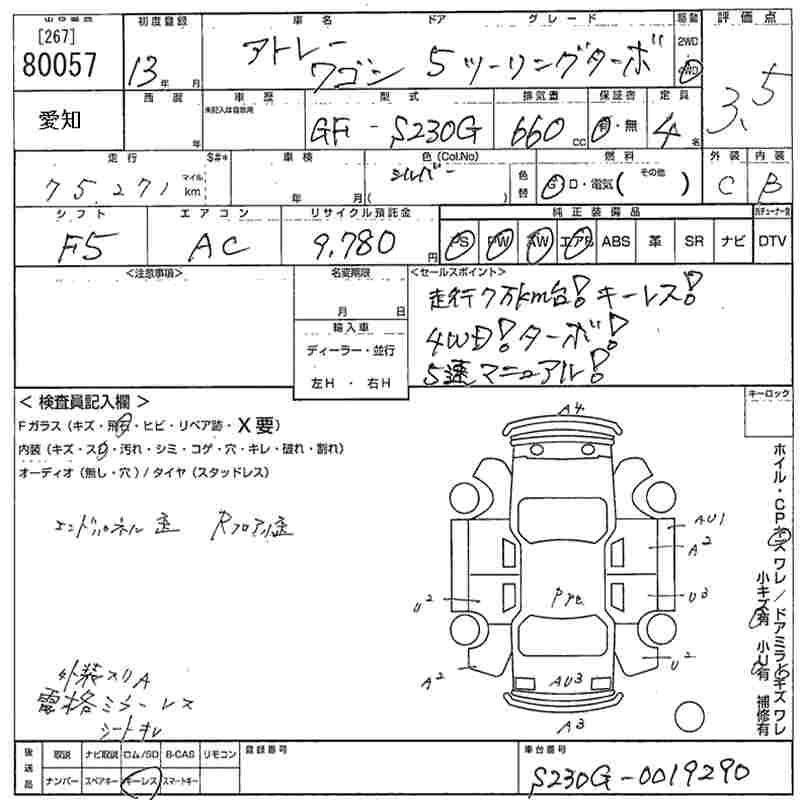 [267]
80057
愛知
初度登録
13年 月
車名 ドア グレード
アトレーワゴン 5 ツーリングターボ
駆動
2WD
4WD
評価点
3.5
西暦
年
車歴
未記入は自家用
型式
GF-S230G
排気量
660 CC
保証書
有・無
定員
4名
走行
75,271
マイル
km
$#*
車検
年 月
色(Col.No)
シルバー
( )
色替
燃料
G・D・電気( その他 )
外装
C
内装
B
シフト
F5
エアコン
AC
リサイクル預託金
9,780円
純正装備品
PS PW AW エアB ABS 革 SR ナビ
DTV
<注意事項>
名変期限
月 日
輸入車
ディーラー・並行
左H・右H
<セールスポイント>
走行7万km台!キーレス!
4WD!ターボ!
5速マニュアル!
<検査員記入欄>
Fガラス(キズ・飛石・ヒビ・リペア跡・X要)
内装(キズ・スレ・汚れ・シミ・コゲ・穴・キレ・破れ・割れ)
オーディオ(無し・穴)/タイヤ(スタッドレス)
外装スリA
電格ミラーレス
シートキレ
キーロック
A4
AU1
A2
U3
U2
U2
A2
AU3
A3
ホイル・CPキズ ワレ/ドアミラーキズ ワレ
小キズ有 小U有 補修有
後送品
取説 ナビ取説 ロム/SD B-CAS リモコン
ナンバー スペアキー キーレス スマートキー
登録番号
車台番号
S230G-0019290